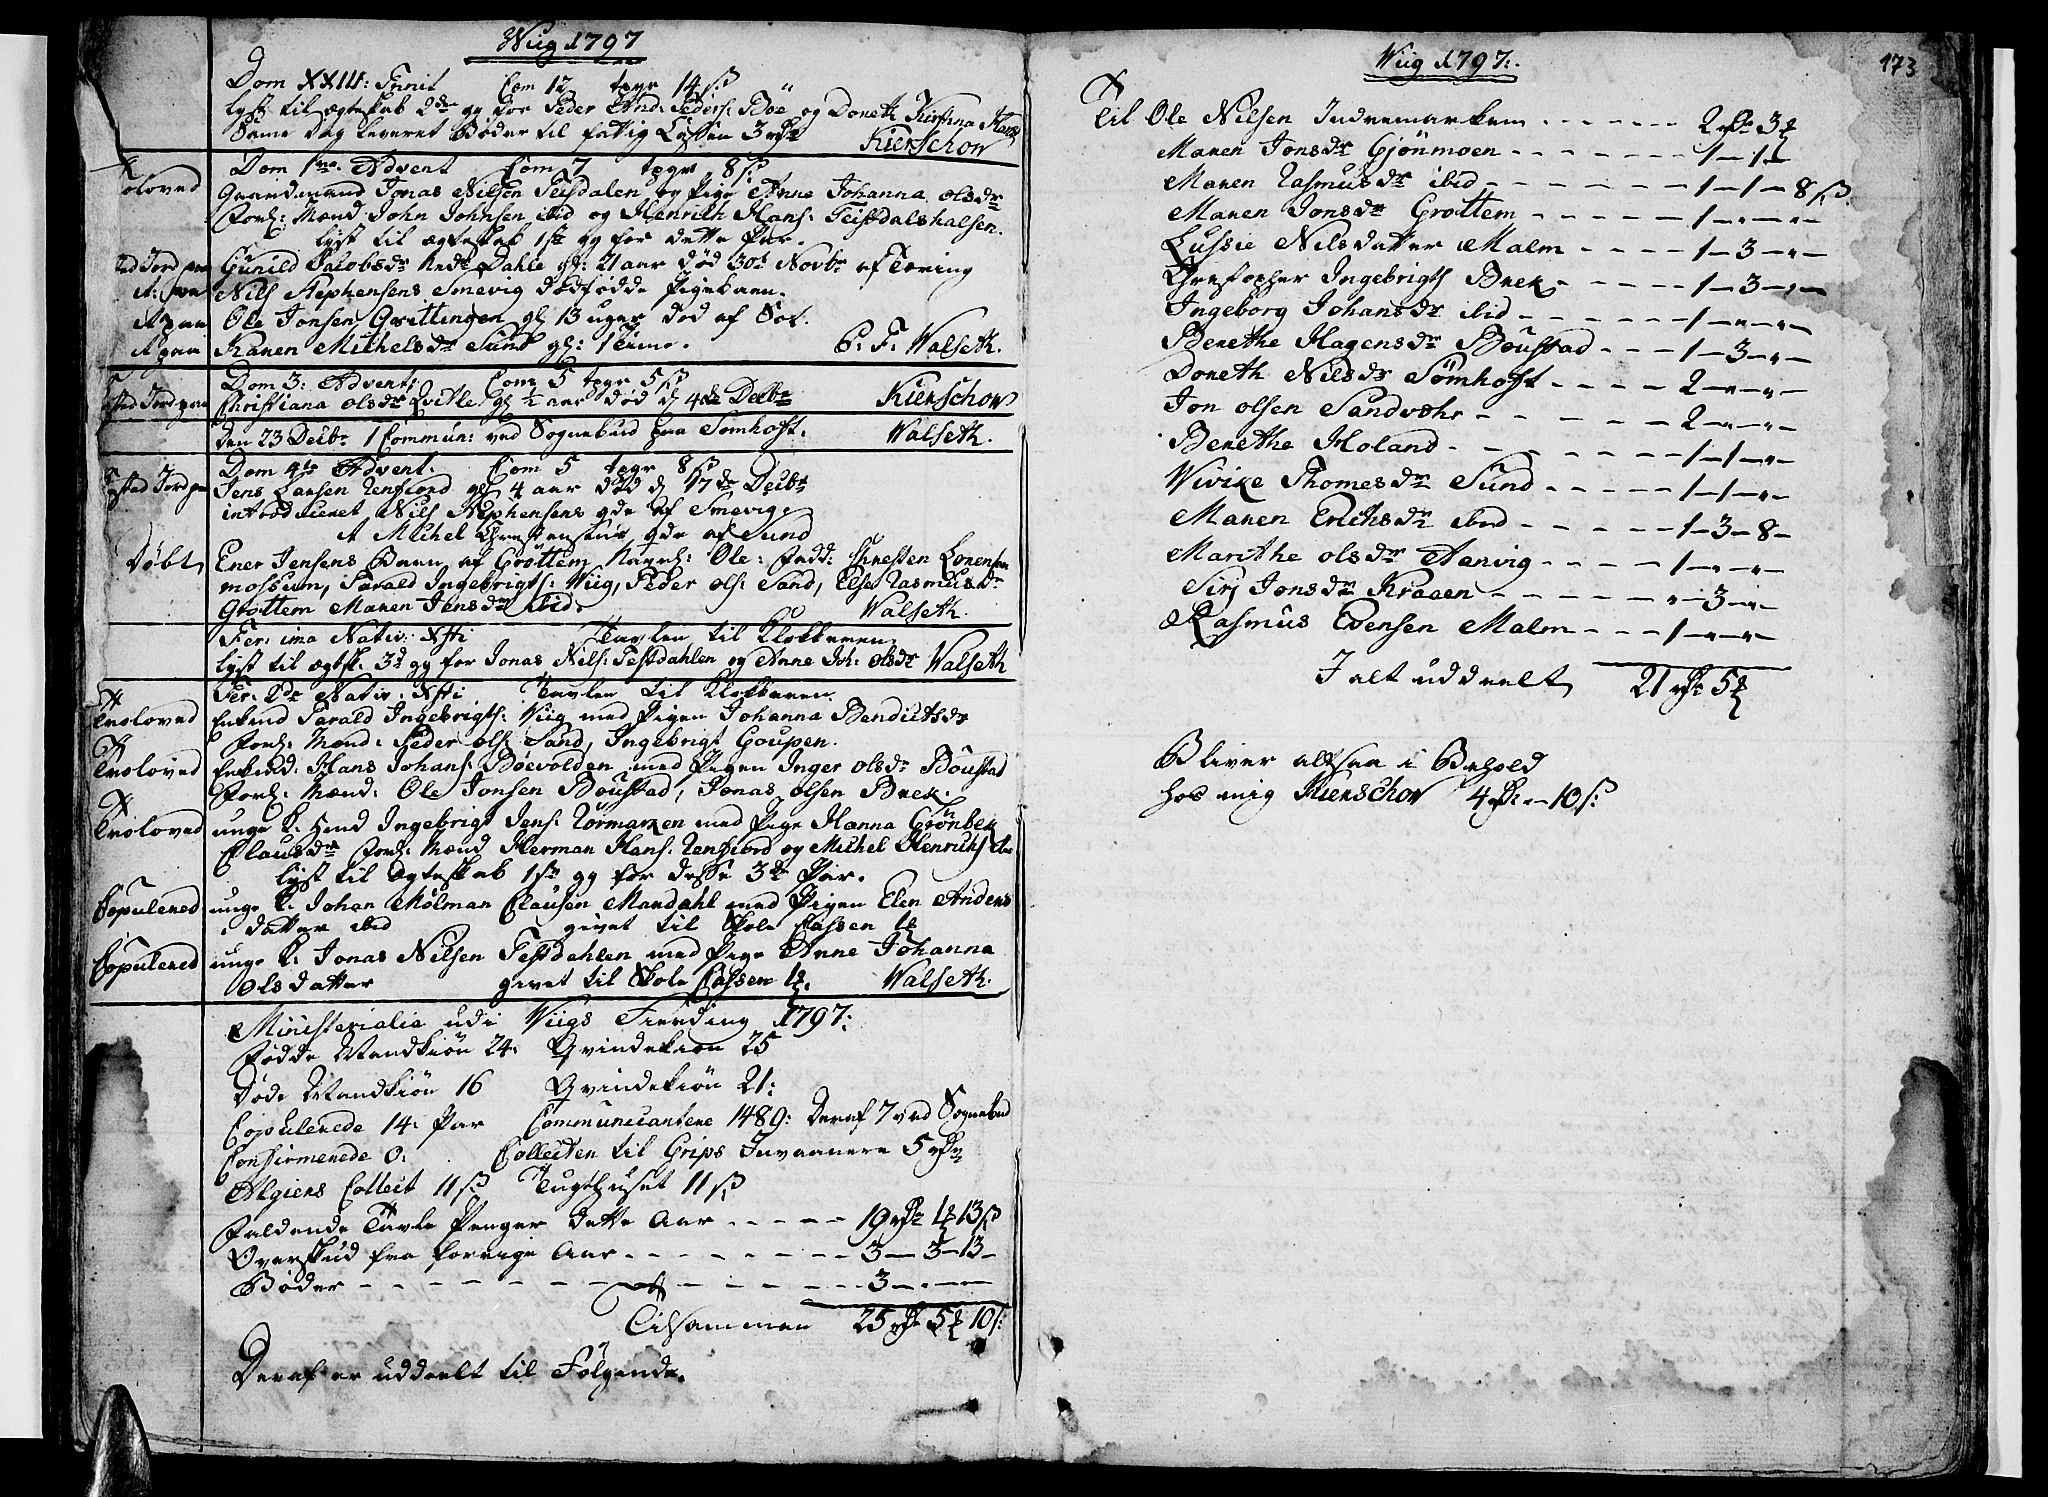 Wiig 1797
Dom XXIII: Trinit Com 12 tegr 14 ß
lyst til ægteskab 2de gg for Peder And: Peders: Boe og Doreth Kirstina Hans
Same Dag leveret Bøder til fattig Cassen 3 rdr Kierschow
Troloved Dom 1me Advent Com 7 tegr 8 ß
Grandmand Jonas Nilsen Teisdalen og Pige Anne Johanna olsdr
Forl: Mænd John Johnsen ibid og Henrich Hans: Teistdalshalsen.
lyst til ægteskab 1ste gg for dette Par.
Gunild Jacobsdr Dahle gl: 21 aar død 30t Novbr af Tæring
Nils Stephensens Smevig dødfødde Pigebarn.
Ole Jonsen Grittingen gl 13 uger død af Sot.
Karen Michelsdr Sund gl: 1 Time. C. F. Walseth.
Dom 3: Advent: Com 5 tegr 5 ß
Christiana olsdr Qvitle gl ½ aar død d 4de Decbr Kierschow
den 23 Decbr 1 Commun: ved Sognebud paa Sømhoft. Walseth.
Dom 4te Advent. Com 5 tegr 8 ß
Jens Larsen Rensfiord gl 4 aar død d 17de Decbr
introduceret Nils Stephensens qde af Smevig
Michel Christensens qde af Sund
Døbt Ener Jensens Barn af Grøttem Navnl: Ole: Fadd: Christen Lorensen
mossum, Harald Ingebrigts: Wiig, Peder ols: Sand, Else Rasmusdr
Grøttem Maren Jensdr ibid. Walseth.
Fer: ima Nativ: Xsti Tavlen til Klokkeren
lyst til ægtsk: 3d gg for Jonas Nils: Testdahlen og Anne Joh: olsdr Walseth
Fer: 2da Nativ: Xsti Tavlen til Klokkeren
Troloved Enkemd Harald Ingebrigts: Viig med Pigen Johanna Bendictsdr
Forl: Mænd: Peder ols: Sand, Ingebrigt Goupen.
Troloved Enkemd: Hans Johans: Bøevolden med Pigen Inger olsdr Boustad
Forl: Mænd: Ole Jonsen Boustad, Jonas olsen Brek.
Troloved unge K: Ingebrigt Jens: Rørmarken med Pige Hanna Grønbek
Clausdr Forl: Mænd Herman Hans: Rensfiord og Michel Henrichs
lyst til Ægteskab 1ste gg for disse 3de Par.
Copulered unge K. Johan Mølman Clausen Mandahl med Pigen Elen Anders
datter ibid givet til Skole Cassen
Copulered unge K. Jonas Nilsen Testdahlen med Pige Anne Johanna
Olsdatter givet til Skole Cassen Walseth.
Ministerialia udi Viigs Fierding 1797:
Fødde Mandkiøn 24. Qvindekiøn 25
Døde Mandkiøn 16 Qvindekiøn 21:
Copulerede 14. Par Communicantere 1489: Deraf 7 ved Sognebud
Confirmerede 0. Collecten til Grips Invaanere 5 rdr
Algiers Collect 11 ß Tugthuset 11 ß
Faldende Tavle Penger dette Aar - - - - - 19 rdr 1 13 ß
Overskud fra forrige Aar - - - - - - - - - 3 - 3 - 13 -
Bøder - - - - - - - - - - - - - - 3 - - -
Tilsammen 25 rdr 5 10 ß
Deraf er uddeelt til Følgende.
Wiig 1797:
173
Til Ole Nilsen Indremarken - - - - - - 2 rdr 3
Maren Jonsdr Gjønmoen - - - - - - - 1 - 1
Maren Rasmusdr ibid - - - - - - - - 1 - 1 - 8 ß
Maren Jonsdr Grøttem - - - - - - 1 - " - " -
Lussie Nilsdatter Malm - - - - 1 - 3 - " -
Christopher Ingebrigts Brek - - - - - 1 - 3 - " -
Ingeborg Johansdr ibid - - - - - - 1 - " - " -
Berethe Hagensdr Boustad - - - 1 - 3 - " -
Doreth Nilsdr Sømhoft - - - - 2 - " - " -
Jon olsen Sandvehr - - - - - 2 - " - " -
Berethe Holand - - - - - - - 1 - 1 - " -
Wivike Thomesdr Sund - - - - - 1 - 1 - " -
Maren Erichsdr ibid - - - - - - 1 - 3 - 8 -
Marithe olsdr Aervig - - - - - 1 - " - " -
Sirj Jonsdr Kraaen - - - - - - " - 3 - " -
Rasmus Edensen Malm - - - 1 - " - " -
I alt uddeelt 21 rdr 5
Bliver altsaa i Behold
hos mig Kierschow 4 rdr - 10 ß: